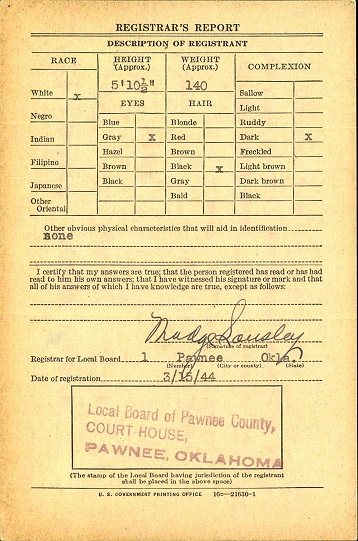 REGISTRAR'S REPORT
DESCRIPTION OF REGISTRANT
RACE HEIGHT (Approx.) WEIGHT (Approx.) COMPLEXION
5'10½" 140
White x Sallow
EYES HAIR
Light
Negro Blue Blonde Ruddy
Indian Gray x Red Dark x
Hazel Brown Freckled
Filipino Brown Black x Light brown
Japanese Black Gray Dark brown
Other Oriental Bald Black
Other obvious physical characteristics that will aid in identification
none
I certify that my answers are true; that the person registered has read or has had
read to him his own answers; that I have witnessed his signature or mark and that
all of his answers of which I have knowledge are true, except as follows:
Madge Sousley
(Signature of registrar)
Registrar for Local Board 1 Pawnee Okla.
(Number) (City or county) (State)
Date of registration 3/15/44
Local Board of Pawnee County,
COURT HOUSE,
PAWNEE, OKLAHOMA
(The stamp of the Local Board having jurisdiction of the registrant
shall be placed in the above space)
U. S. GOVERNMENT PRINTING OFFICE 16c—21630-1